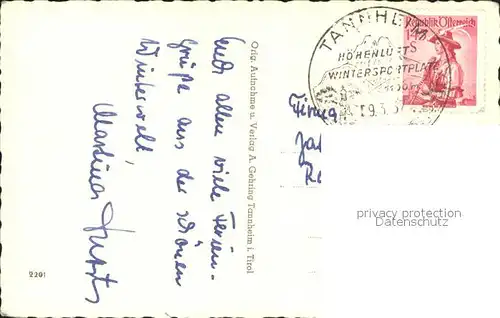 Euch allen viele Ferien-
grüße aus der schönen
Winterwelt,
Orig. Aufnahme u. Verlag A. Gehring Tannheim i. Tirol
2201
TANNHEIM
HÖHENLUFT
WINTERSPORTPLATZ
Republik Österreich
S
Firma
privacy protection
Datenschutz